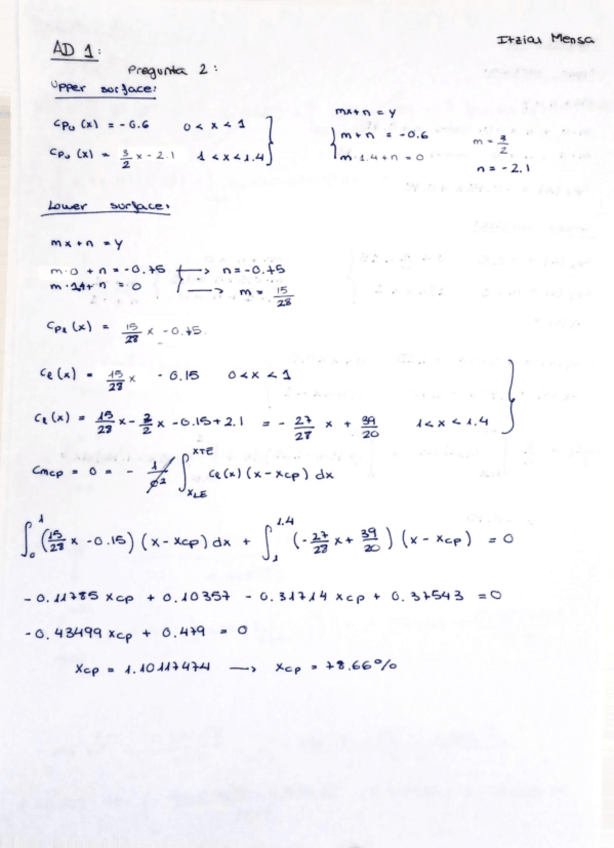 Itziar Mensa
AD 1:
Pregunta 2:
Upper surface:
Cpu (x) = -0.6   0 < x < 1
Cpu (x) = 3/2 x - 2.1   1 < x < 1.4
mx + n = y
m + n = -0.6
m·1.4 + n = 0
m = 3/2
n = -2.1
Lower surface:
mx + n = y
m·0 + n = -0.75 → n = -0.75
m·1.4 + n = 0 → m = 15/28
Cpl (x) = 15/28 x - 0.75.
Cl (x) = 15/28 x - 0.15   0 < x < 1
Cl (x) = 15/28 x - 3/2 x - 0.75 + 2.1 = - 27/28 x + 39/20   1 < x < 1.4
Cmcp = 0 = - 1/c² ∫ xLE xTE Cl (x) (x - xcp) dx
∫ 0 1 (15/28 x - 0.15) (x - xcp) dx + ∫ 1 1.4 (-27/28 x + 39/20) (x - xcp) = 0
-0.11785 xcp + 0.10357 - 0.31714 xcp + 0.37543 = 0
-0.43499 xcp + 0.479 = 0
xcp = 1.10117474 → xcp = 78.66%